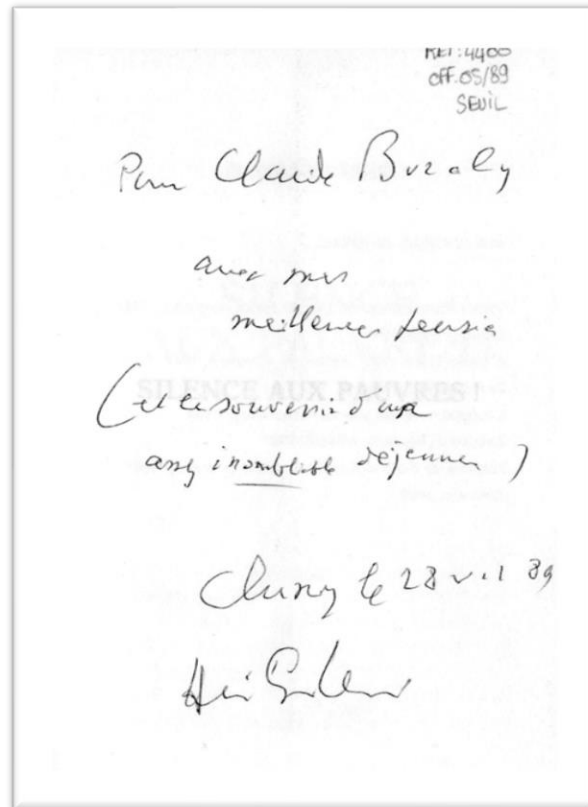 REF: 4400
OFF. 05/89
SEUIL
Pour Claude
avec mes
meilleures pensées
SILENCE AUX PAUVRES !
(et le souvenir d'un
assez inoubliable déjeuner)
Cluny le 28 VII 89